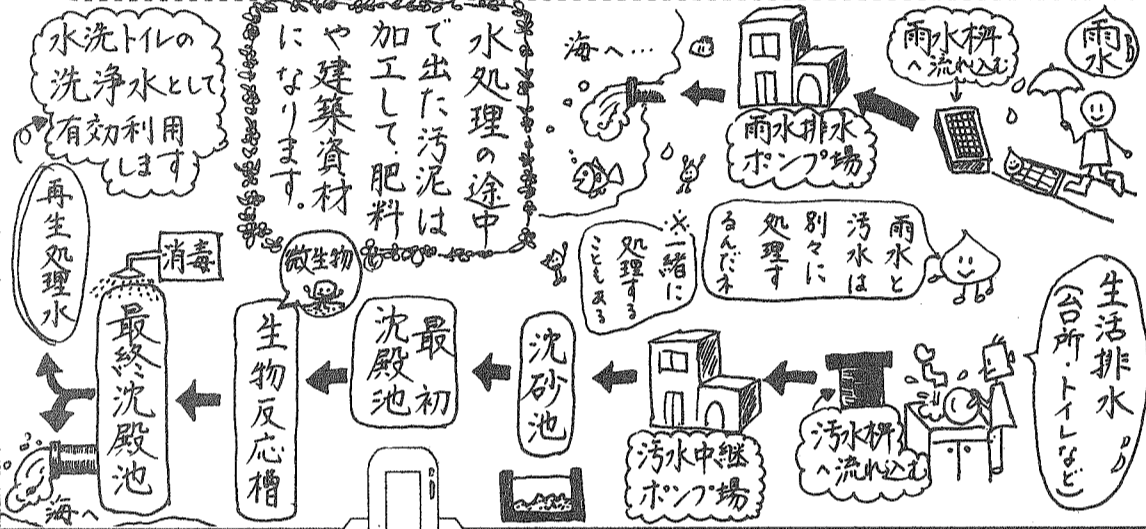 雨水
雨水桝
へ流れ込む
雨水排水
ポンプ場
海へ…
雨水と
汚水は
別々に
処理す
るんだネ
※一緒に
処理する
こともある
生活排水
(台所・トイレなど)
汚水桝
へ流れ込む
汚水中継
ポンプ場
沈砂池
最初
沈殿池
微生物
生物反応槽
消毒
最終沈殿池
海へ
再生処理水
水洗トイレの
洗浄水として
有効利用
します
水処理の途中
で出た汚泥は
加工して、肥料
や建築資材
になります。